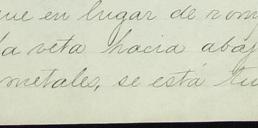 que en lugar de rom
la veta hacia abaj
metales, se está